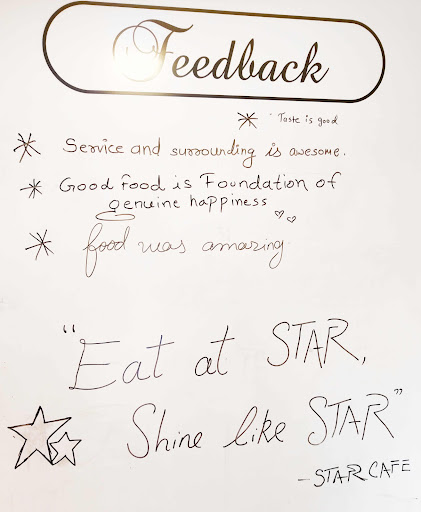 Feedback
* Taste is good
* Service and surrounding is awesome.
* Good food is Foundation of
genuine happiness
* food was amazing
"Eat at STAR,
Shine like STAR"
- STAR CAFE